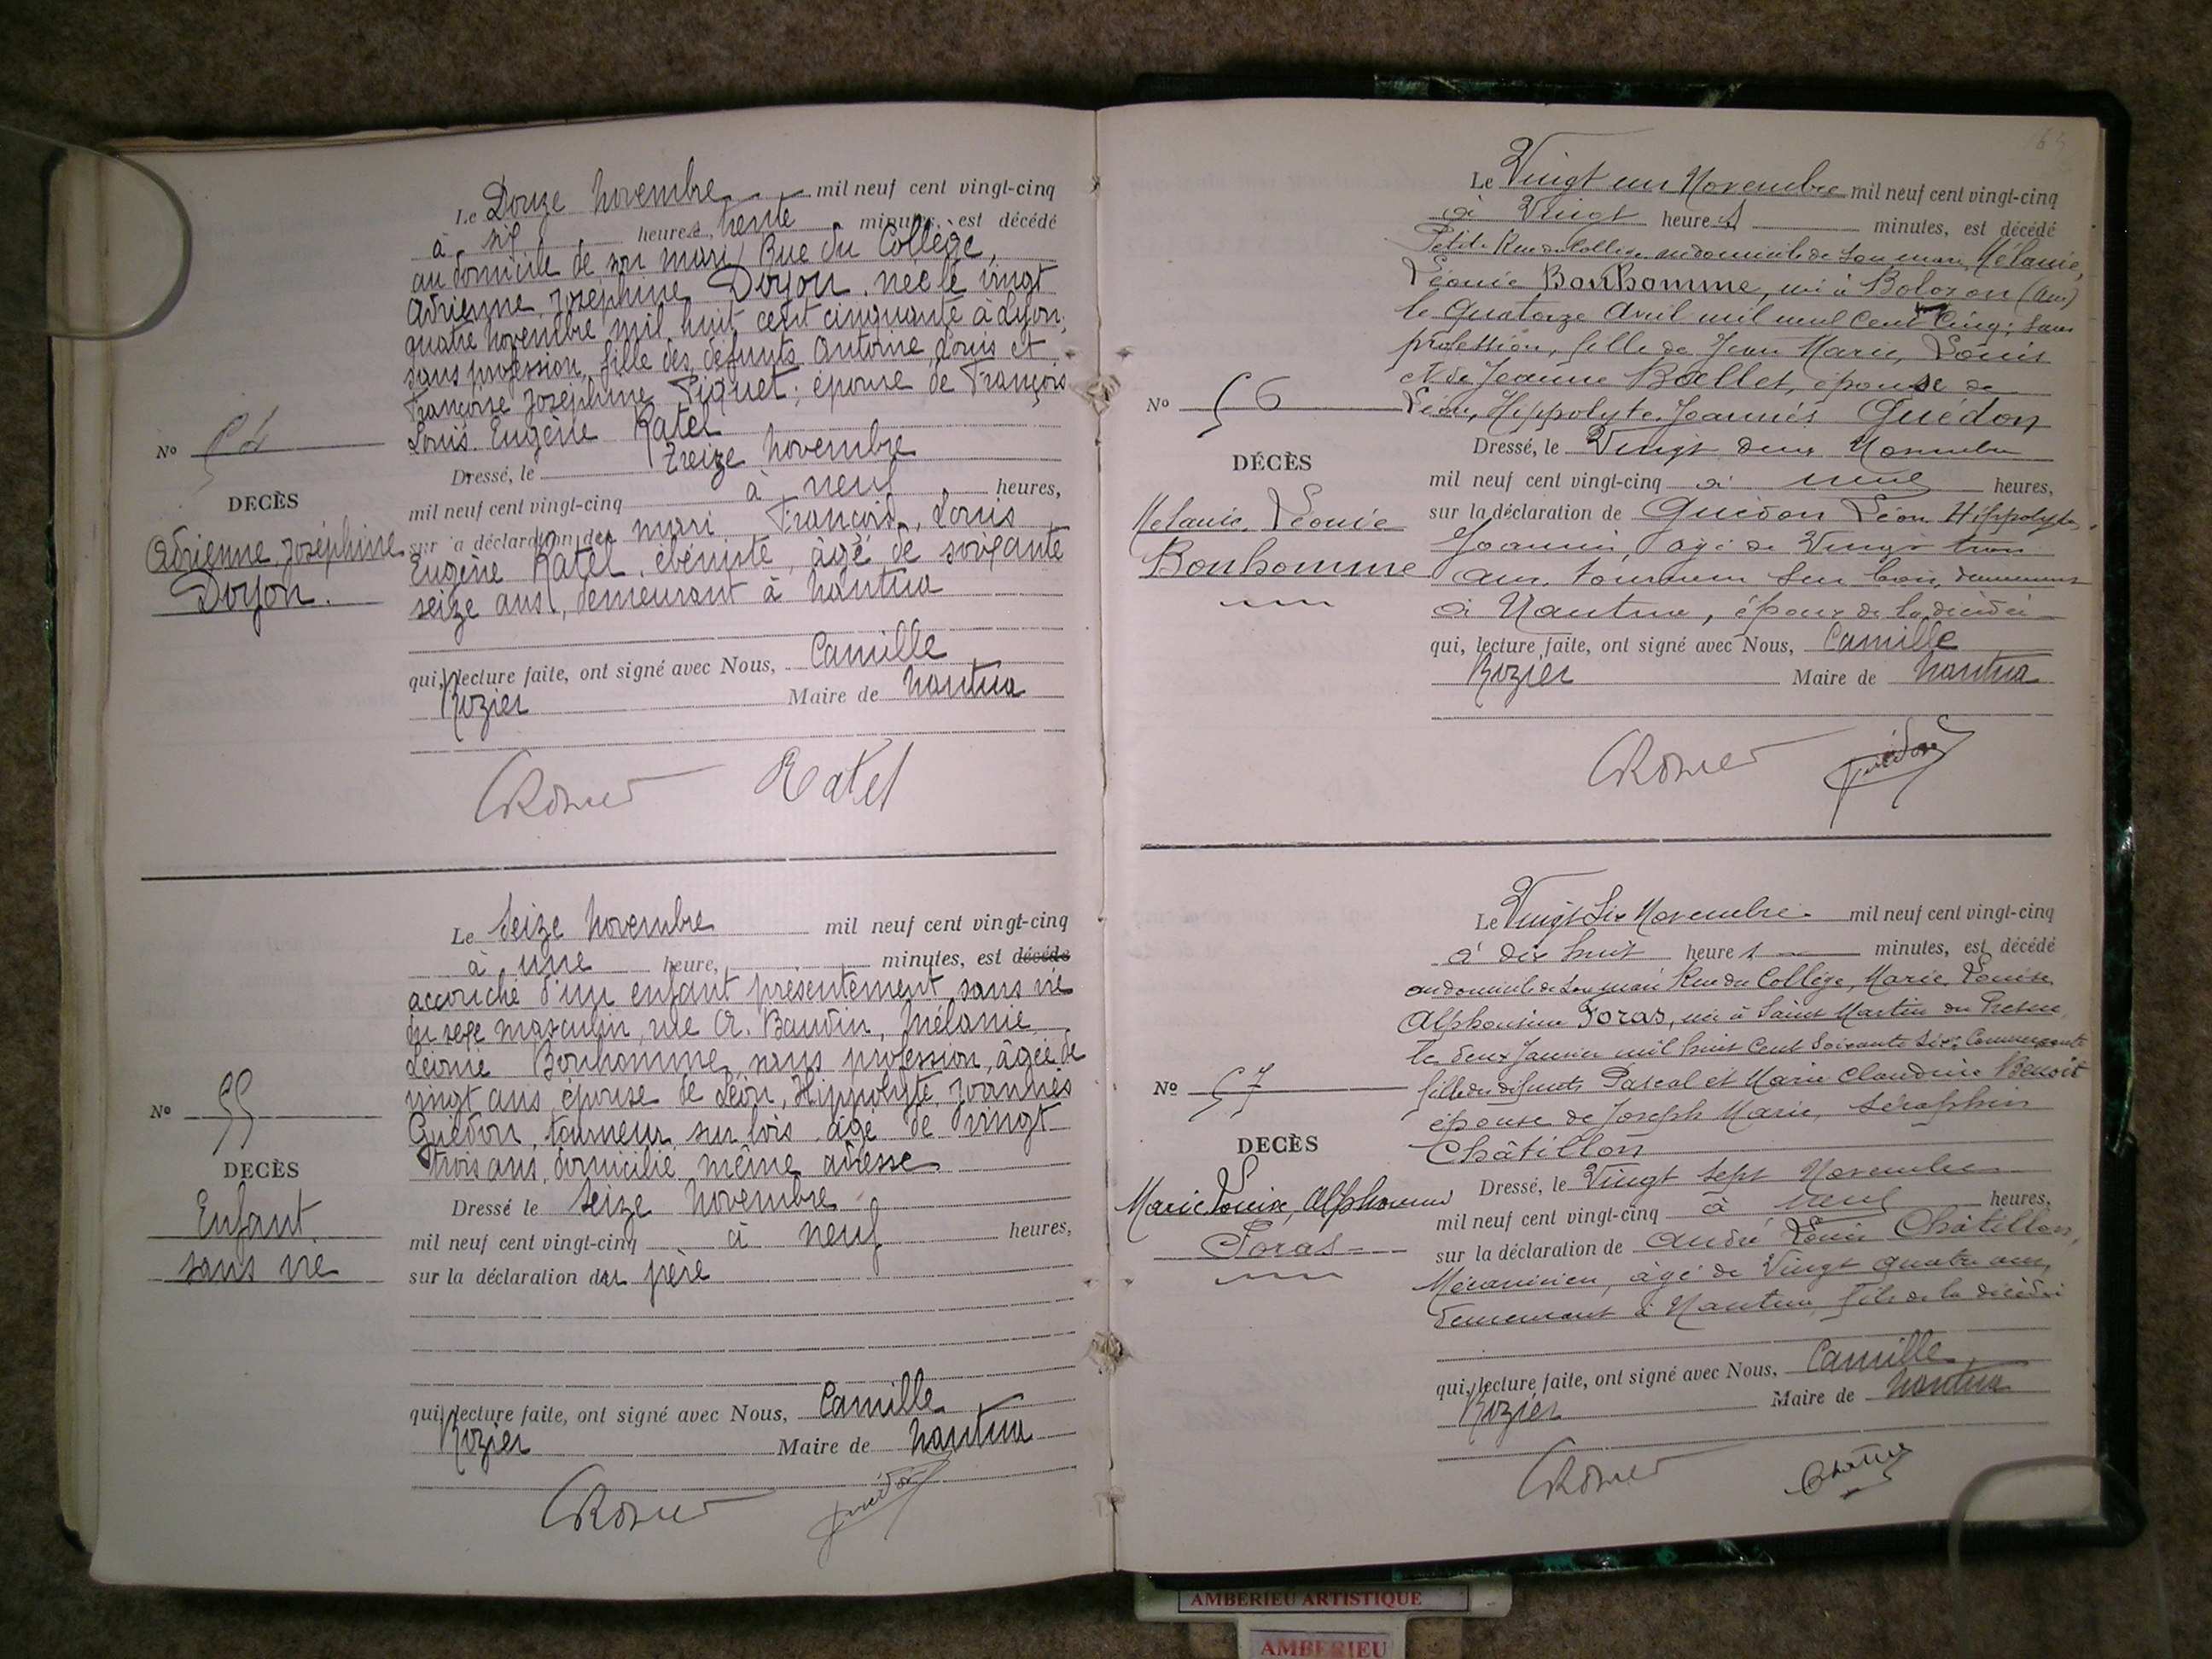 Le Douze novembre mil neuf cent vingt-cinq
à six heures, trente minutes, est décédé
au domicile de son mari, Rue du Collège,
Adrienne, Joséphine Doyon, née le vingt
quatre novembre mil huit cent cinquante à Lyon,
sans profession, fille des défunts Antoine, Louis et
Françoise Joséphine Piquet; épouse de François
Louis Eugène Ratel
No 54
Dressé, le treize novembre
mil neuf cent vingt-cinq à neuf heures,
DECÈS
Adrienne, Joséphine
Doyon.
sur la déclaration du mari François, Louis
Eugène Ratel, ébéniste, âgé de soixante
seize ans, demeurant à Nantua
qui, lecture faite, ont signé avec Nous, Camille
Rozier Maire de Nantua
CRozier Ratel
Le Seize novembre mil neuf cent vingt-cinq
à une heure, minutes, est décédé
accouché d'un enfant présentement sans vie
du sexe masculin, rue A. Baudin, Mélanie
Léonie Bonhomme, sans profession, âgée de
vingt ans, épouse de Léon, Hippolyte, Joannès
Guédon, tourneur sur bois âgé de vingt
trois ans, domicilié même adresse
No 55
DECÈS
Enfant
sans vie
Dressé le seize novembre
mil neuf cent vingt-cinq à neuf heures,
sur la déclaration du père
qui, lecture faite, ont signé avec Nous, Camille
Rozier Maire de Nantua
CRozier Guédon
Le Vingt un Novembre mil neuf cent vingt-cinq
à Vingt heures minutes, est décédé
Petite Rue du Collège au domicile de son mari, Mélanie,
Léonie Bonhomme, née à Bolozon (Ain)
le Quatorze Avril mil neuf cent cinq; sans
profession, fille de Jean Marie, Louis
et de Jeanne Boellet, épouse de
Léon, Hippolyte, Joannès Guédon
No 56
DÉCÈS
Mélanie, Léonie
Bonhomme
Dressé, le Vingt deux Novembre
mil neuf cent vingt-cinq à neuf heures,
sur la déclaration de Guédon Léon Hippolyte,
Joannès, âgé de Vingt trois
ans, tourneur sur bois, demeurant
à Nantua, époux de la décédée
qui, lecture faite, ont signé avec Nous, Camille
Rozier Maire de Nantua
CRozier Guédon
Le Vingt Six Novembre mil neuf cent vingt-cinq
à dix huit heures minutes, est décédé
au domicile de son mari Rue du Collège, Marie, Louise
Alphonsine Soras, née à Saint Martin du Fresne,
le deux Janvier mil huit cent soixante six, Commerçante
fille des défunts Pascal et Marie Claudine Benoit
épouse de Joseph Marie, Séraphin
Châtillon
No 57
DECÈS
Marie, Louise, Alphonsine
Soras
Dressé, le Vingt sept Novembre
mil neuf cent vingt-cinq à neuf heures,
sur la déclaration de André Louis Châtillon,
Mécanicien, âgé de Vingt quatre ans,
demeurant à Nantua, fils de la décédée
qui, lecture faite, ont signé avec Nous, Camille
Rozier Maire de Nantua
CRozier
AMBERIEU ARTISTIQUE
AMBERIEU